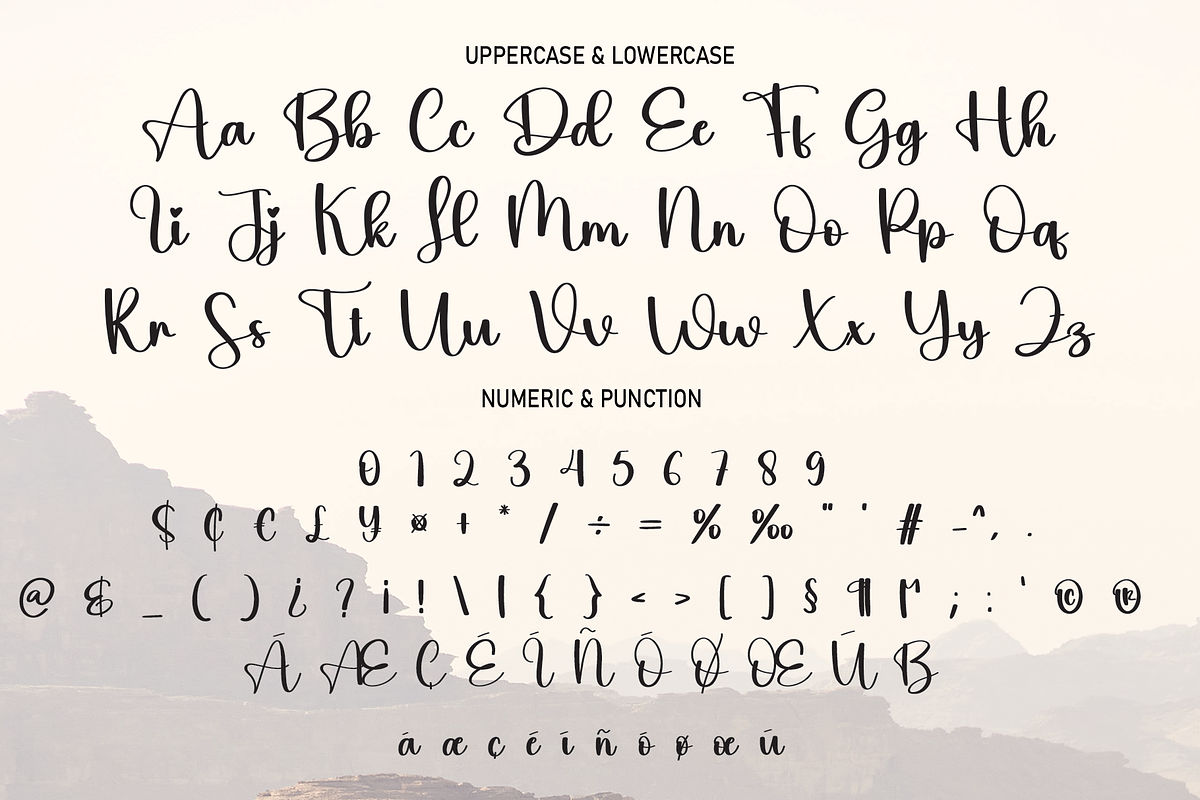 UPPERCASE & LOWERCASE
Aa Bb Cc Dd Ee Ff Gg Hh
Ii Jj Kk Ll Mm Nn Oo Pp Qq
Rr Ss Tt Uu Vv Ww Xx Yy Zz
NUMERIC & PUNCTION
0 1 2 3 4 5 6 7 8 9
$ ¢ € £ ¥ ¤ + * / ÷ = % ‰ " ' # - ^ , .
@ & _ ( ) ¿ ? ¡ ! \ | { } < > [ ] § ¶ ; : ' © ®
Á Æ Ç É Í Ñ Ó Ø Œ Ú B
á æ ç é í ñ ó ø œ ú